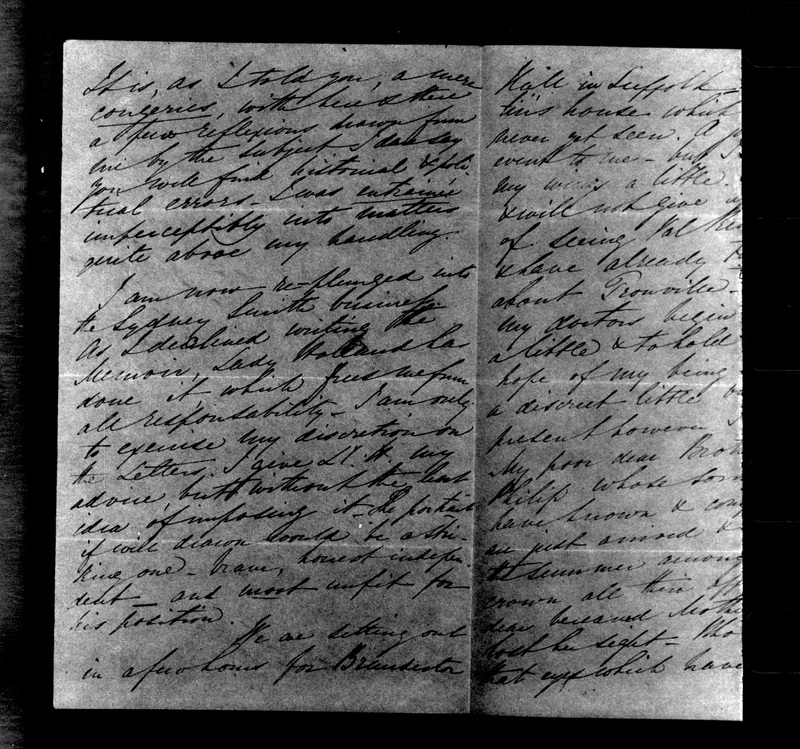 It is, as I told you, a mere
congeries, with here & there
a few reflexions drawn from
me by the subject I dare say
you will find historical & poli
tical errors - I was entrainée
imperceptibly into matters
quite above my handling.
I am now re-plunged into
the Sydney Smith business.
As I declined writing the
Memoir, Lady Holland has
done it which frees me from
all responsability - I am only
to exercise my discretion on
the Letters. I give Ly. H. my
advice, but without the least
idea of imposing it - The portrait
if well drawn would be a stri-
king one - brave, honest indepen-
dent - and most unfit for
his position.
We are setting out
in a few hours for
Hall in Suffolk -
this house which
never yet seen. A
event to me - but
my wings a little.
& will not give
of seeing
& have already
about Trouville -
my doctors begin
a little & to hold
hope of my being
a discreet little
present however
My poor dear
Philip whose
have known &
are just arrived &
the summer among
crown all their
dear bereaved
lost her sight -
that eyes which have